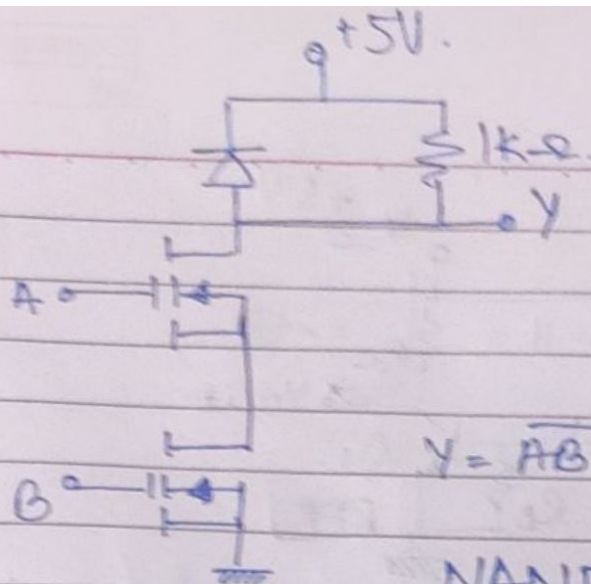 +5V.
1KΩ
Y
A
Y = \overline{AB}
B
NAND